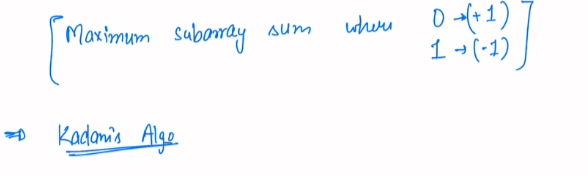 [Maximum subarray sum where 0 → (+1)
1 → (-1)]
⇒ Kadani's Algo